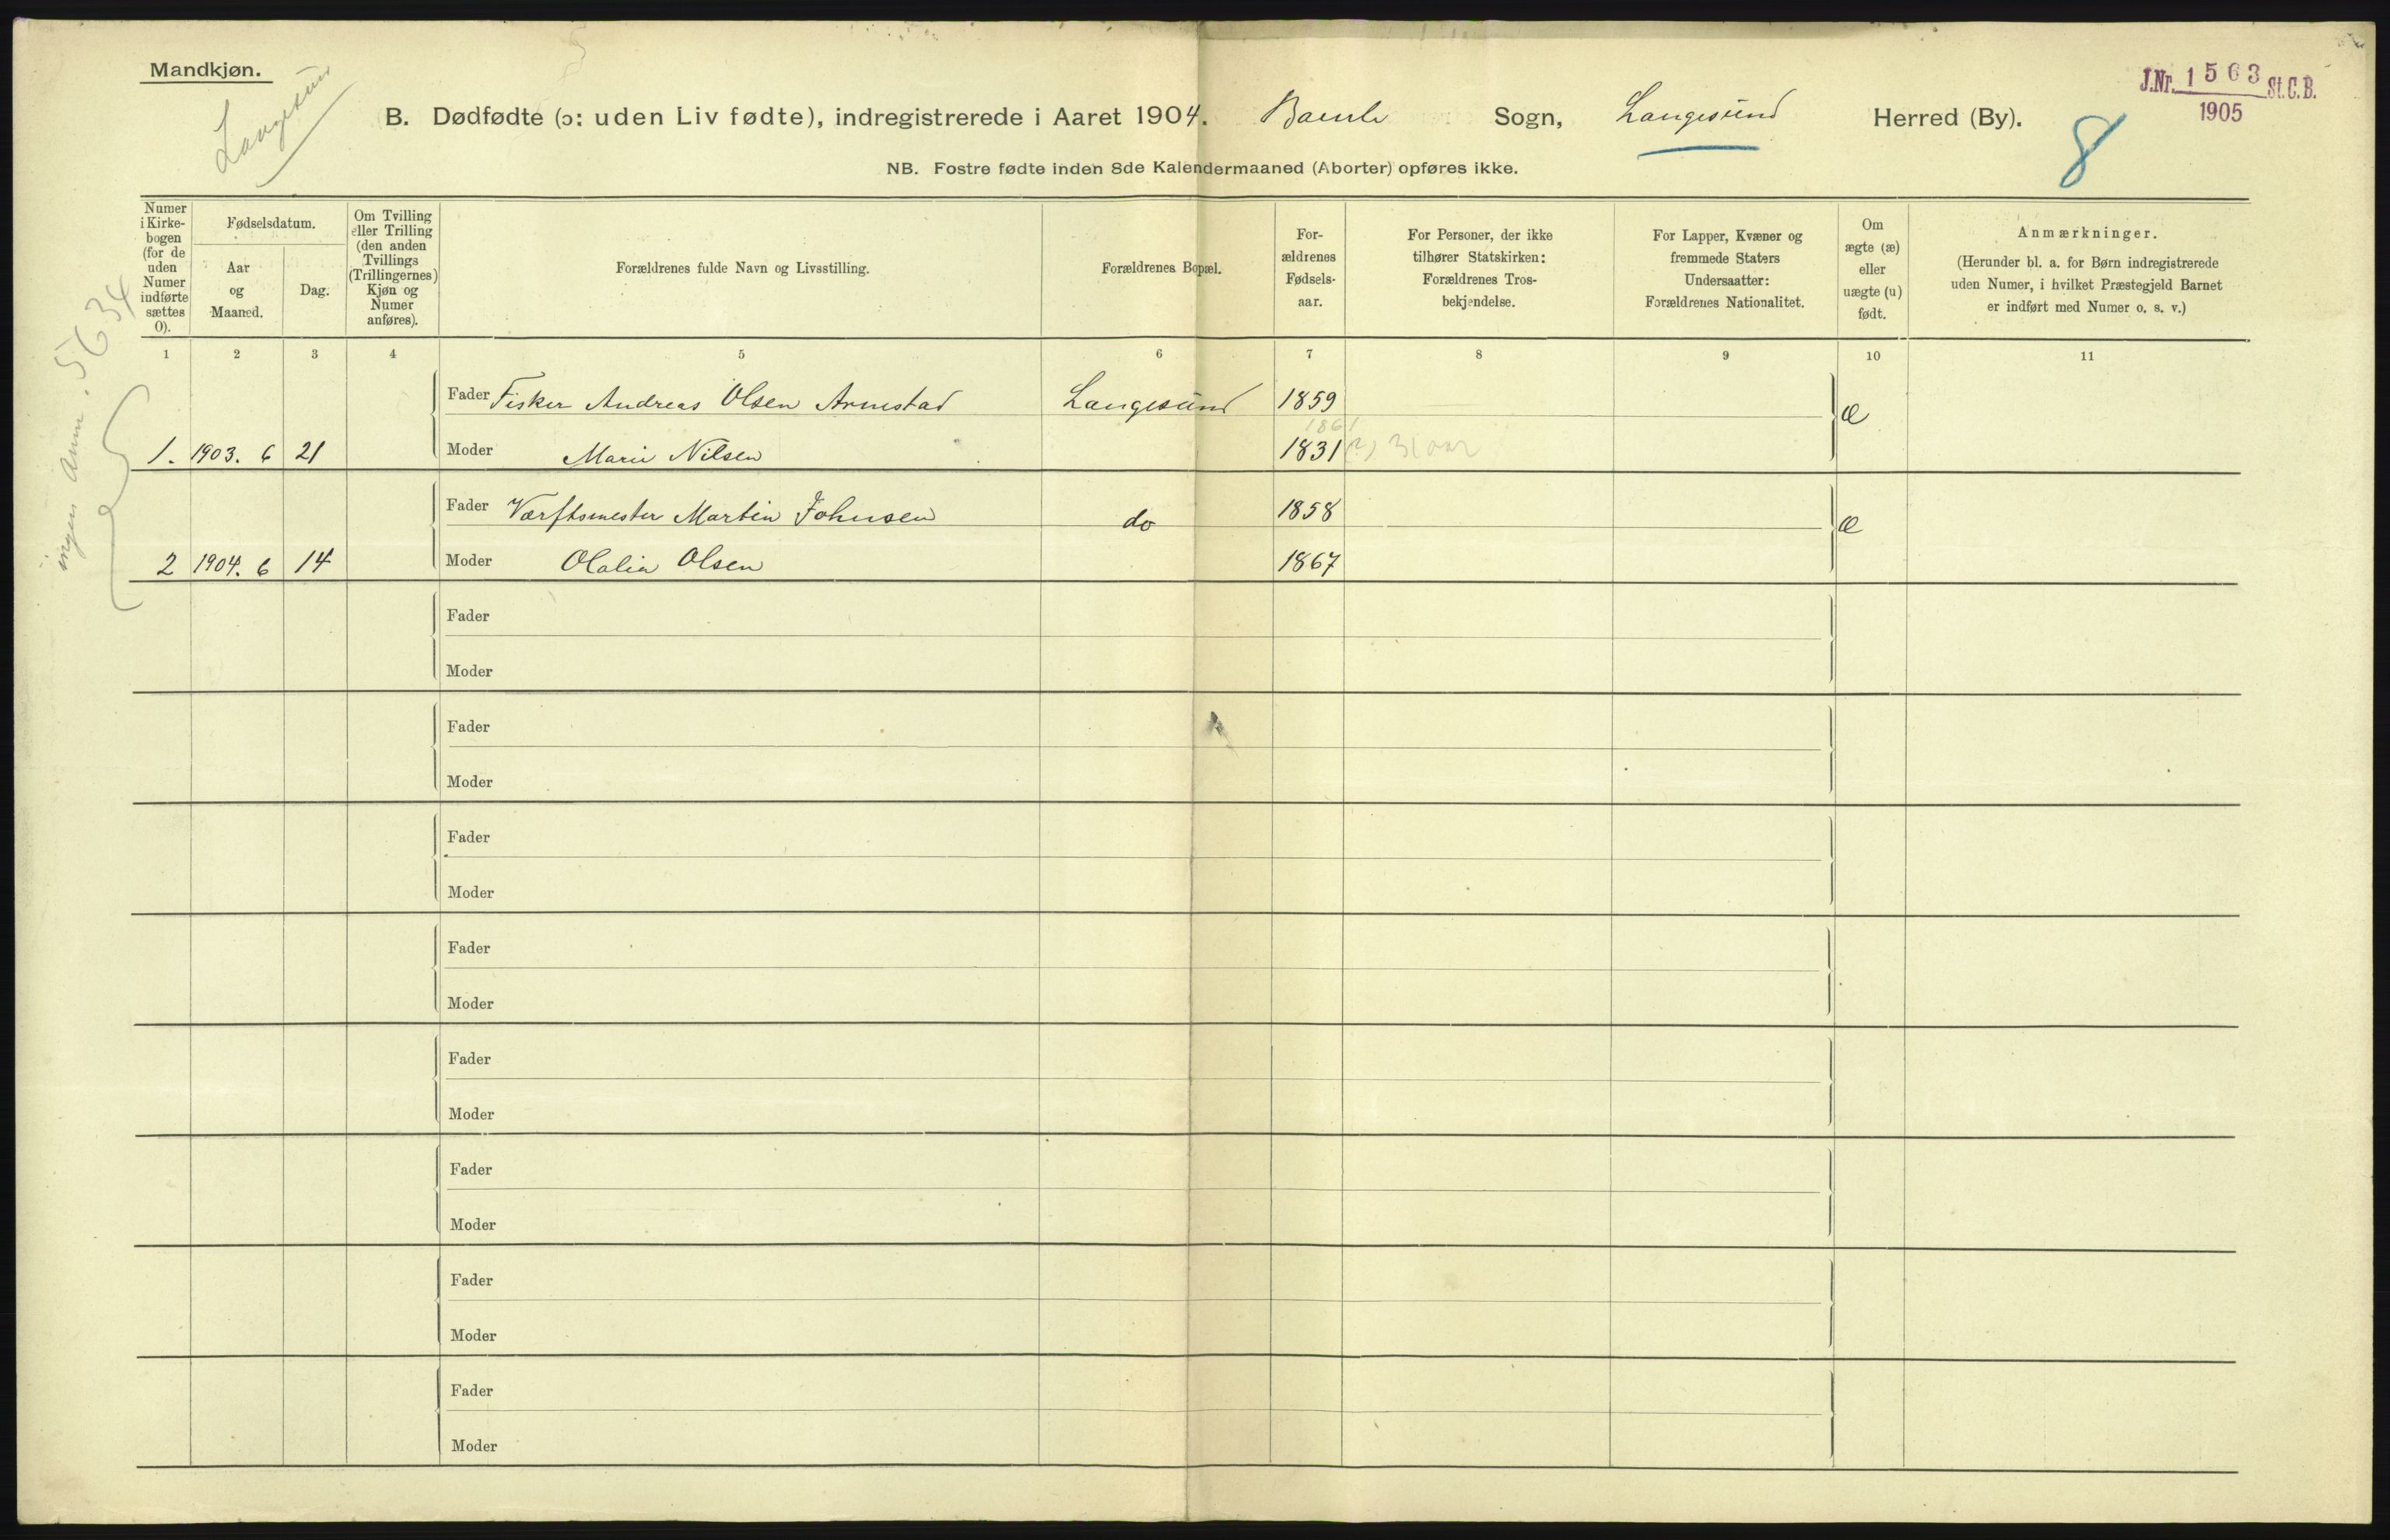 Mandkjøn.
Langesund
B. Dødfødte (ɔ: uden Liv fødte), indregistrerede i Aaret 1904. Bamle Sogn, Langesund Herred (By).
J.Nr. 1563 St.C.B.
1905
8
NB. Fostre fødte inden 8de Kalendermaaned (Aborter) opføres ikke.
Numer
i Kirke-
bogen
(for de
uden
Numer
indførte
sættes
0).
Fødselsdatum.
Aar
og
Maaned.
Dag.
Om Tvilling
eller Trilling
(den anden
Tvillings
(Trillingernes)
Kjøn og
Numer
anføres).
Forældrenes fulde Navn og Livsstilling.
Forældrenes Bopæl.
For-
ældrenes
Fødsels-
aar.
For Personer, der ikke
tilhører Statskirken:
Forældrenes Tros-
bekjendelse.
For Lapper, Kvæner og
fremmede Staters
Undersaatter:
Forældrenes Nationalitet.
Om
ægte (æ)
eller
uægte (u)
født.
Anmærkninger.
(Herunder bl. a. for Børn indregistrerede
uden Numer, i hvilket Præstegjeld Barnet
er indført med Numer o. s. v.)
1 2 3 4 5 6 7 8 9 10 11
ingen Anm. 5634
Fader Fisker Andreas Olsen Arnestad Langesund 1859 æ
1861
1. 1903. 6 21 Moder Marie Nilsen 1831 (?) 31 aar
Fader Værftsmester Martin Johnsen do 1858 æ
2 1904. 6 14 Moder Olalia Olsen 1867
Fader
Moder
Fader
Moder
Fader
Moder
Fader
Moder
Fader
Moder
Fader
Moder
Fader
Moder
Fader
Moder